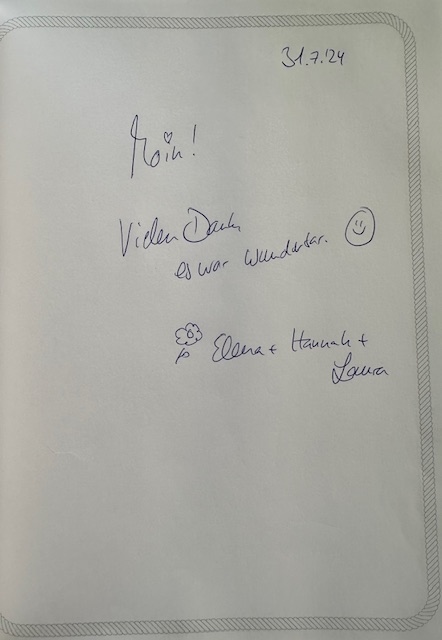 31.7.'24
Moin!
Vielen Dank
es war wunderbar.
Elena + Hannah +
Laura